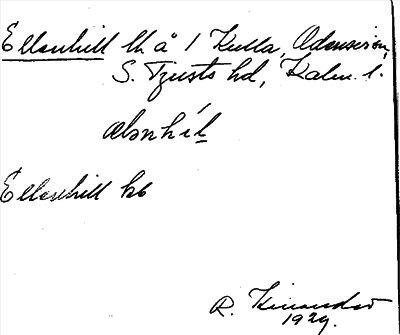 Ellenhill lh å 1 Kulla, Odensviön,
S. Tjusts hd, Kalm. l.
ælənhíl
Ellenhill hb
R. Kinander
1929.